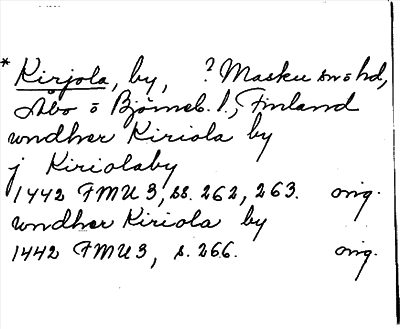 * Kirjola, by, ? Masku snöhd,
Åbo o Björneb. l., Finland
wndher Kiriola by
j Kiriolaby
1442 FMU 3, ss. 262, 263. orig.
wndher Kiriola by
1442 FMU 3, s. 266. orig.